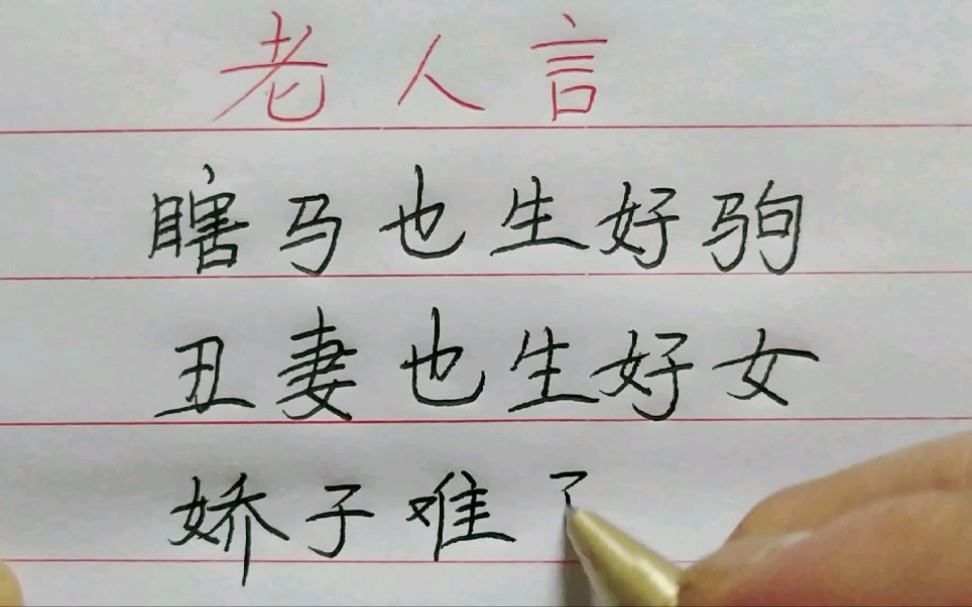 老人言
瞎马也生好驹
丑妻也生好女
娇子难